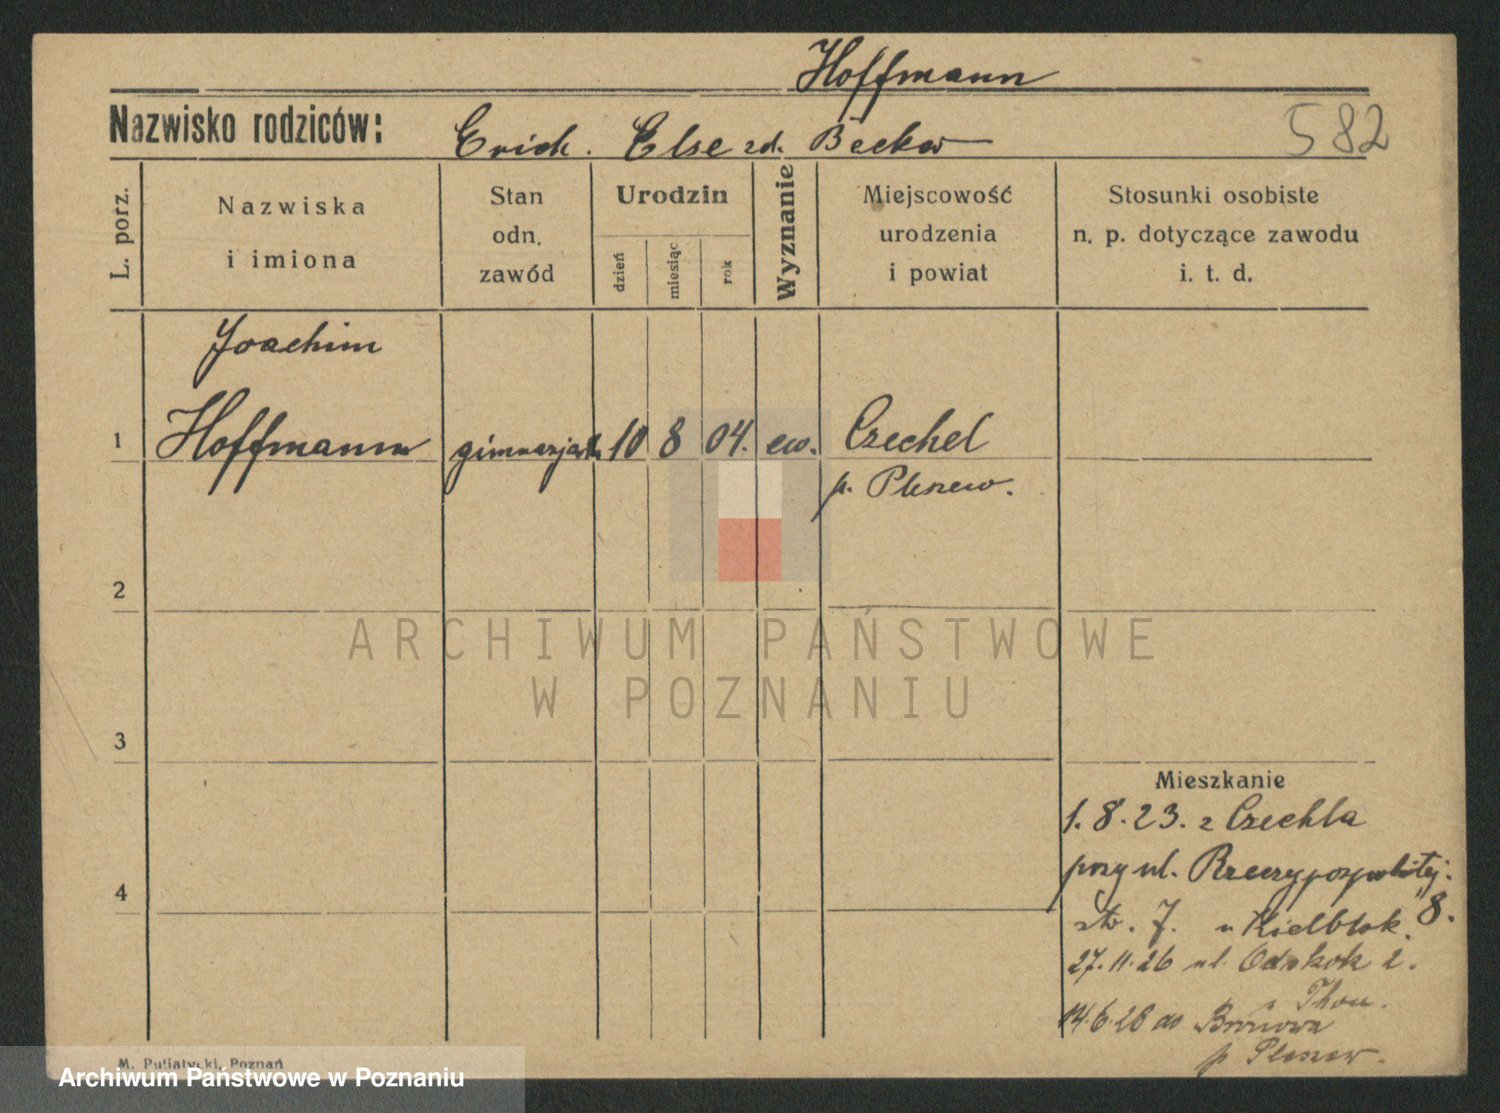 Hoffmann
Nazwisko rodziców: Erich. Else zd. Becker
582
L. porz.
Nazwiska
i imiona
Stan
odn.
zawód
Urodzin
dzień
miesiąc
rok
Wyznanie
Miejscowość
urodzenia
i powiat
Stosunki osobiste
n. p. dotyczące zawodu
i. t. d.
Joachim
1 Hoffmann 10 8 04. ew. Czechel
p. Pleszew.
2
ARCHIWUM PAŃSTWOWE
W POZNANIU
3
Mieszkanie
1.8.23. z Czechla
przy ul. Rzeczypospolitej. 8.
4
str. 7. u Kielblok.
27.11.26 ul. Odskok 2.
14.6.28 do Bronowa
p. Pleszew.
M. Putiatycki, Poznań
Archiwum Państwowe w Poznaniu